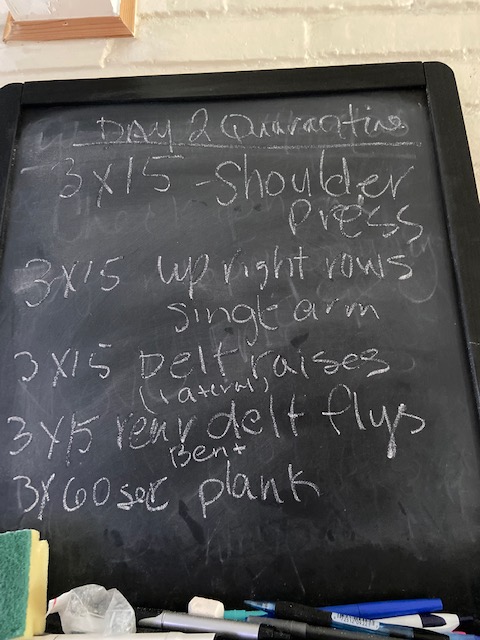 DAY 2 Quarantine
3X15 - Shoulder
press
3X15 upright rows
single arm
3X15 Delt raises
(lateral)
3X15 rear delt flys
Bent
3X60 sec plank